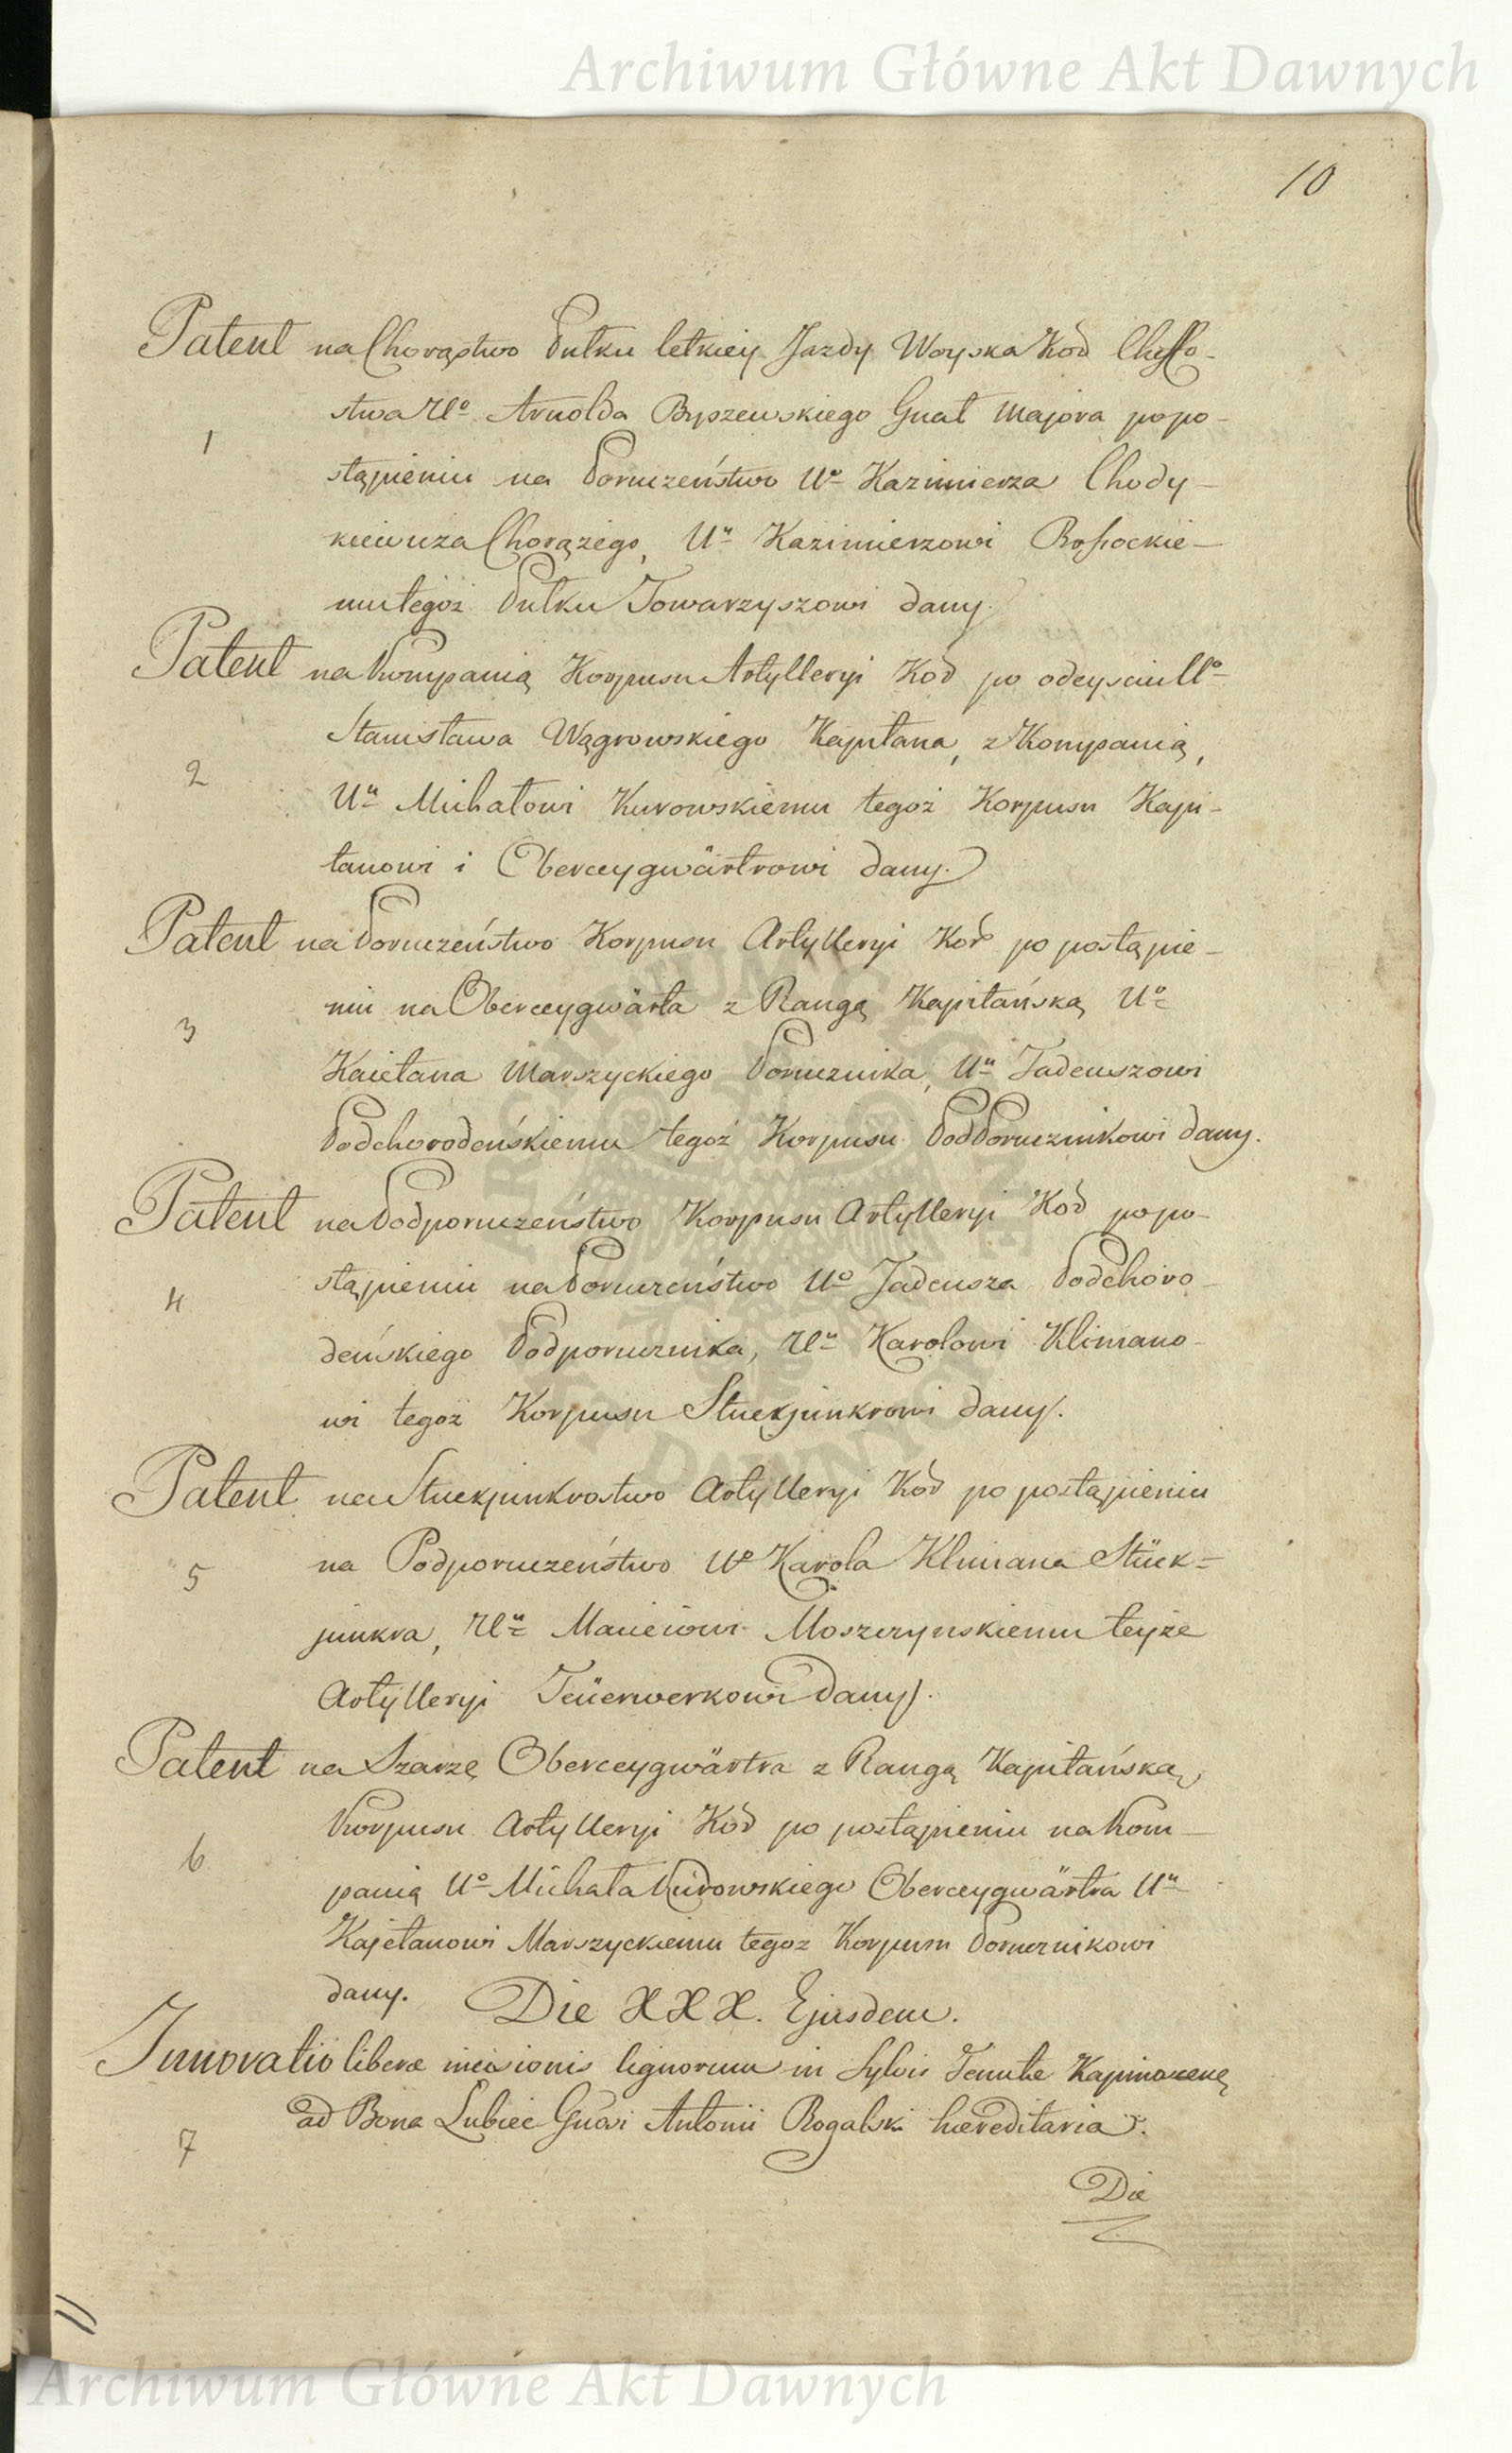 Archiwum Główne Akt Dawnych
10
Patent na Chorąstwo Pułku letkiey Jazdy Woyska Kod Cheffo-
stwa Uo Arnolda Byszewskiego Gnał Majora popo-
1
stąpieniu na Poruczeństwo Uo Kazimierza Chody-
kiewicza Chorążego, Uu Kazimierzowi Rossockie-
mu tegoż Pułku Towarzyszowi dany.
Patent na Kompanią Korpusu Artylleryi Kod po odeysciu Uo
Stanisława Wągrowskiego Kapitana, z Kompanią,
2
Uu Michałowi Kurowskiemu tegoż Korpusu Kapi-
tanowi i Oberceygwärtrowi dany.
Patent na Poruczeństwo Korpusu Artylleryi Kod po postąpie-
niu na Oberceygwärta z Rangą Kapitańską Uo
3
Kaietana Marszyckiego Porucznika, Uu Tadeuszowi
Podchorodeńskiemu tegoż Korpusu PodPorucznikowi dany.
Patent na Podporuczeństwo Korpusu Artylleryi Kod popo-
stąpieniu na Poruczeństwo Uo Tadeusza Podchoro-
4
deńskiego Podporucznika, Uu Karolowi Klimano-
wi tegoż Korpusu Stuckjunkrowi dany.
Patent na Stuckjunkrostwo Artylleryi Kod po postąpieniu
na Podporuczeństwo Uo Karola Klimana Stück=
5
junkra, Uu Macieiowi Moszczynskiemu teyże
Artylleryi Feüerwerkowi dany.
Patent na Szarzę Oberceygwärtra z Rangą Kapitańską,
Korpusu Artylleryi Kod po postąpieniu na Kom-
6
panią Uo Michała Kurowskiego Oberceygwärtra Uu
Kajetanowi Marszyckiemu tegoz Korpusu Porucznikowi
dany. Die XXX. Ejusdem.
Innovatio liberæ incisionis lignorum in Sylvis Tenutæ Kapinoscensę
ad Bona Lubiec Gnosi Antonii Rogalski hæreditaria.
7
Die
Archiwum Główne Akt Dawnych